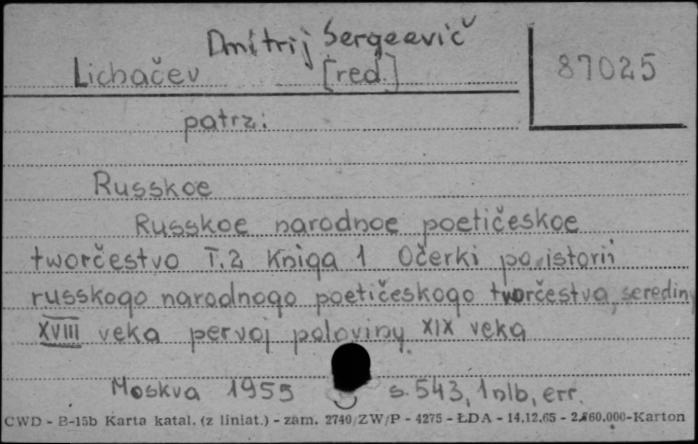 Dmitrij Sergeevič
Lichačev [red.]
87025
patrz:
Russkoe
Russkoe narodnoe poetičeskoe
tworčestvo T.2 Kniga 1 Očerki po istorii
russkogo narodnogo poetičeskogo tvorčestva serediny
XVIII veka pervoj poloviny XIX veka
Moskva 1955 s. 543, 1 nlb, err.
CWD - B-15b Karta katal. (z liniat.) - zam. 2740/ZW/P - 4275 - ŁDA - 14.12.65 - 2.860.000-Karton